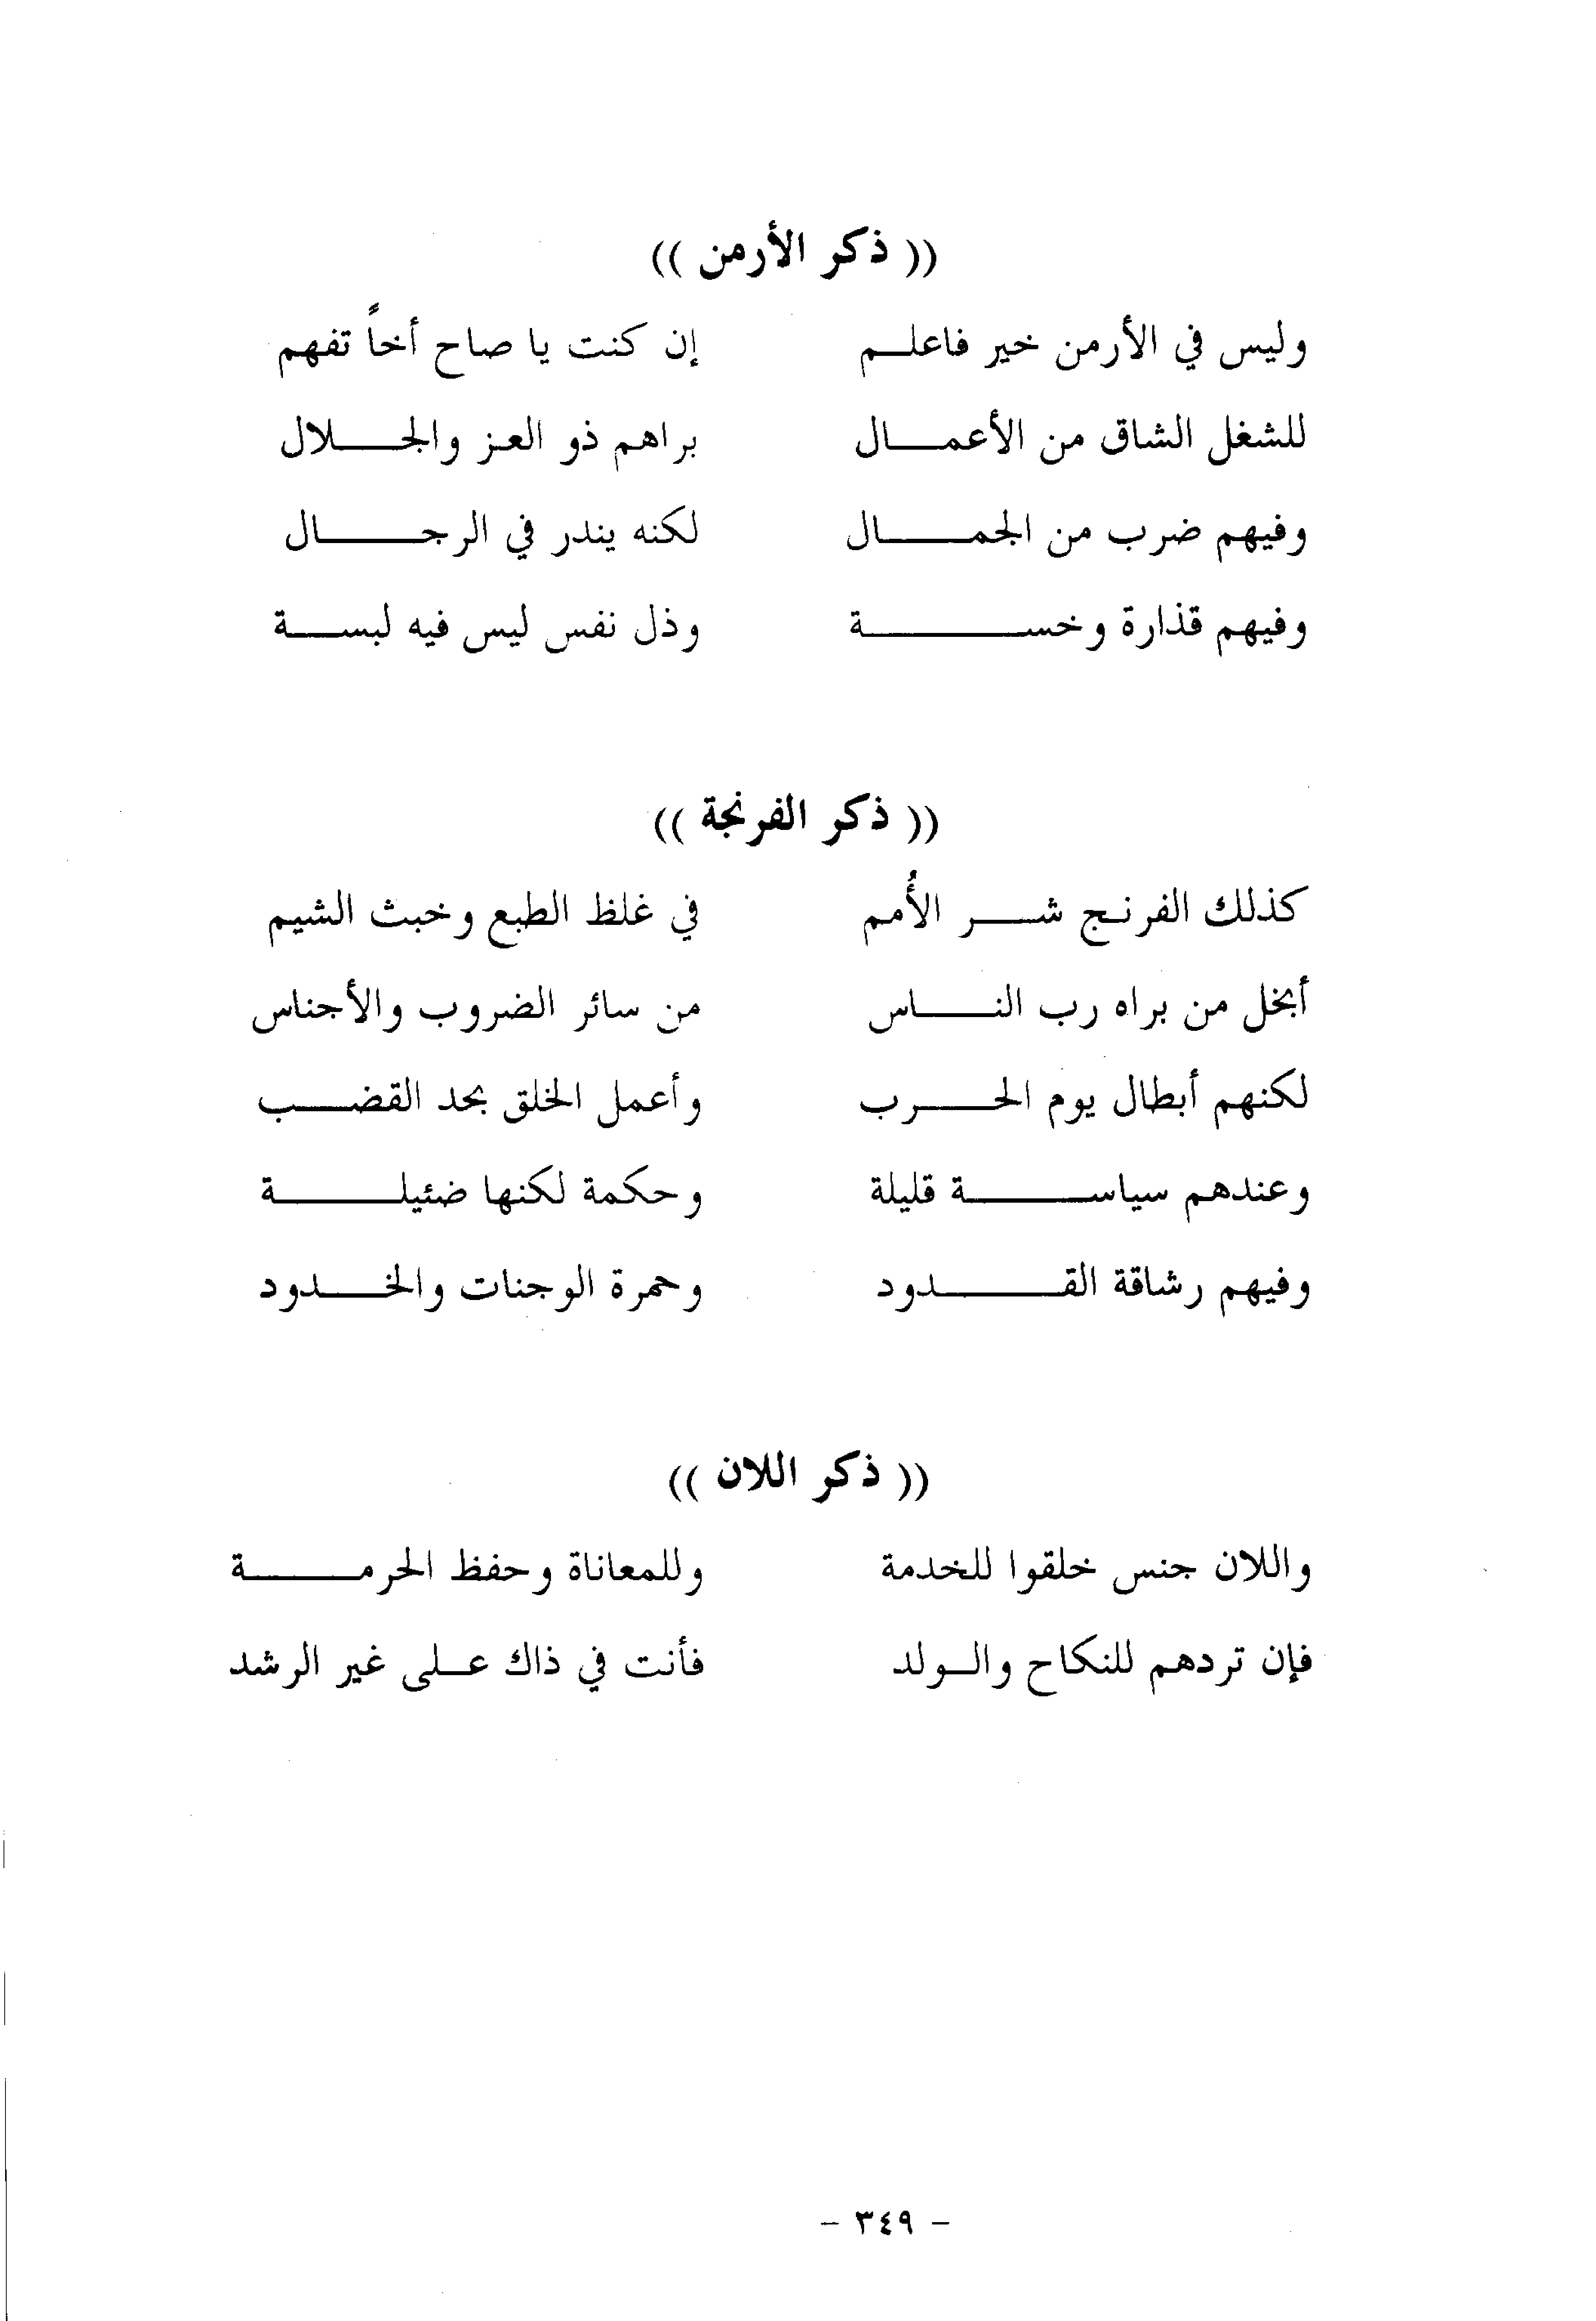 (( ذكر الأرمن ))
وليس في الأرمن خير فاعلـم إن كنت يا صاح أخاً تفهم
للشغل الشاق من الأعمـال براهم ذو العز والجـلال
وفيهم ضرب من الجمـال لكنه يندر في الرجـال
وفيهم قذارة وخسـة وذل نفس ليس فيه لبسـة
(( ذكر الفرنجة ))
كذلك الفرنـج شـر الأُمم في غلظ الطبع وخبث الشيم
أبخل من براه رب النـاس من سائر الضروب والأجناس
لكنهم أبطال يوم الحـرب وأعمل الخلق بحد القضـب
وعندهم سياسـة قليلة وحكمة لكنها ضئيلـة
وفيهم رشاقة القـدود وحمرة الوجنات والخـدود
(( ذكر اللان ))
واللان جنس خلقوا للخدمة وللمعاناة وحفظ الحرمـة
فإن تردهم للنكاح والـولد فأنت في ذاك عـلى غير الرشد
- ٣٤٩ -